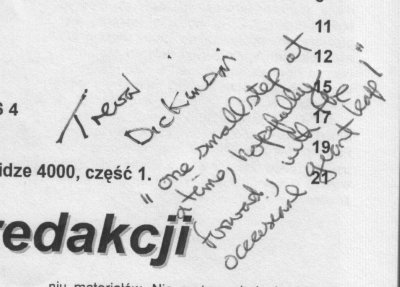 9
11
12
15
17
19
21
S 4
Trevor
Dickinson
"one small step at
a time, hopefully
forward, with the
occasional giant leap!"
idze 4000, część 1.
redakcji
niu materiałów. Nie